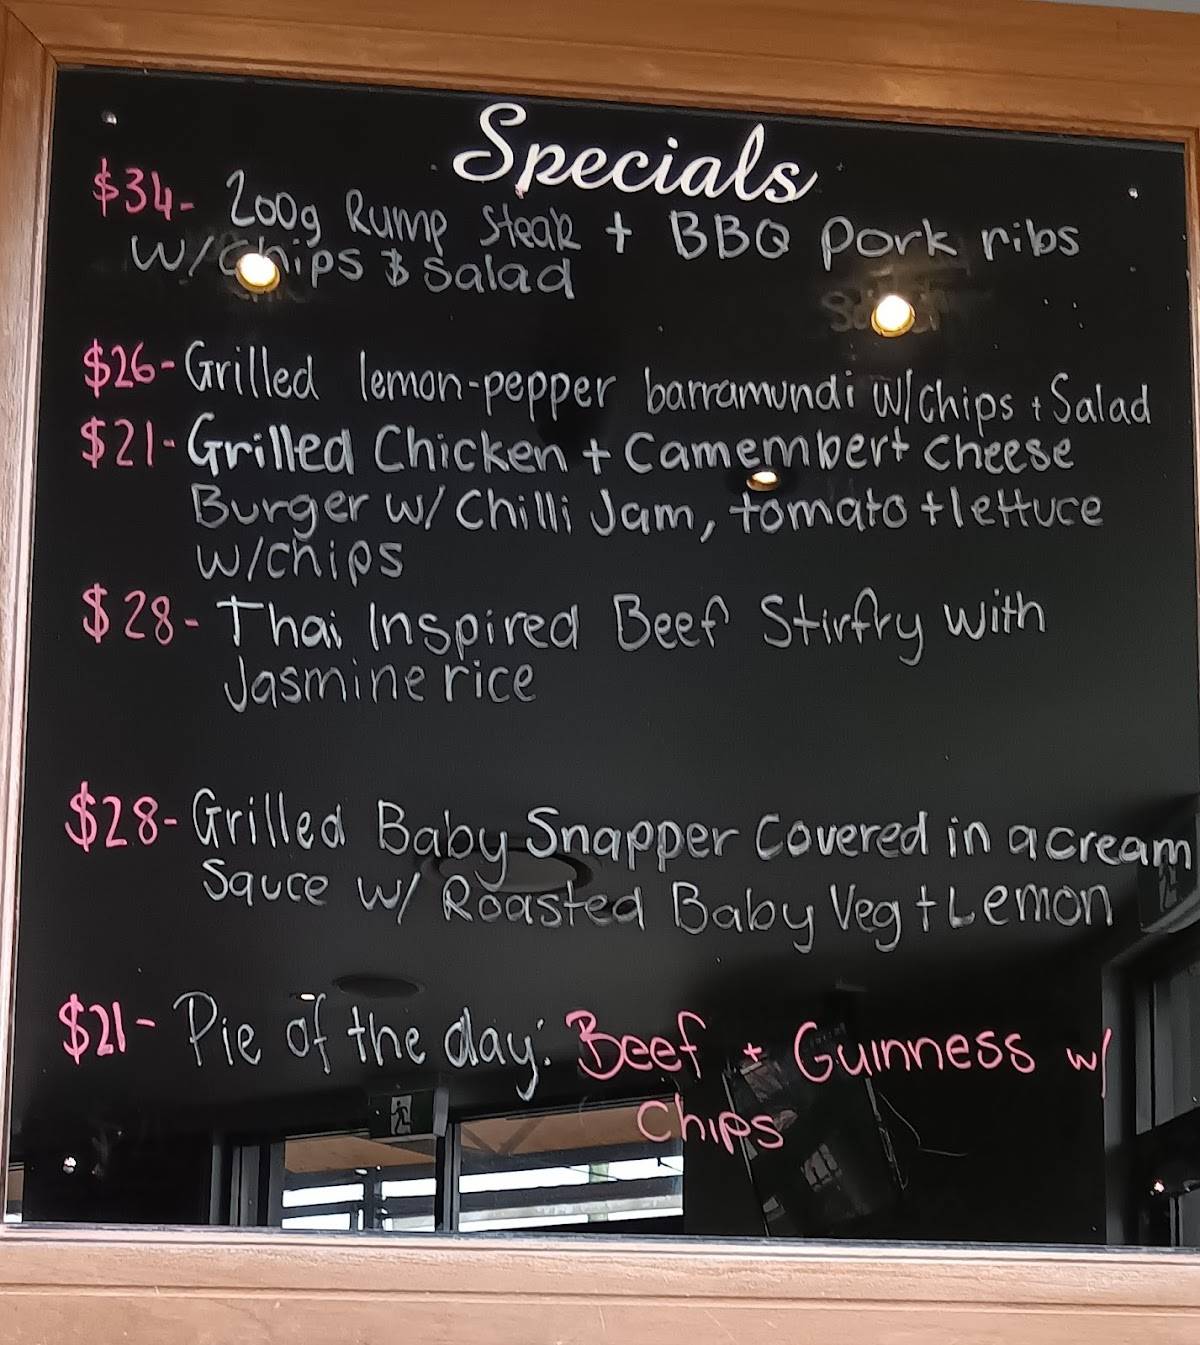 Specials
$34- 200g Rump Steak + BBQ Pork ribs
w/chips & Salad
$26- Grilled lemon-pepper barramundi w/chips + Salad
$21- Grilled Chicken + Camembert cheese
Burger w/ Chilli Jam, tomato + lettuce
w/chips
$28- Thai Inspired Beef Stirfry with
Jasmine rice
$28- Grilled Baby Snapper Covered in a cream
Sauce w/ Roasted Baby Veg + Lemon
$21- Pie of the day: Beef + Guinness w/
Chips